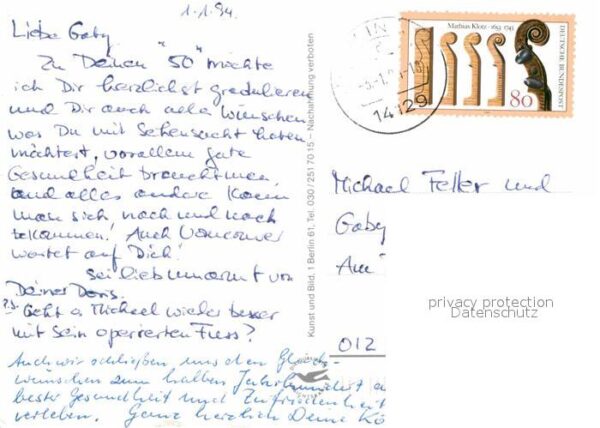 1.1.94.
Liebe Gaby
Zu Deinen "50" möchte
ich Dir herzlichst gratulieren
und Dir auch alles wünschen
was Du mit Sehnsucht haben
möchtest, vorallem gute
Gesundheit braucht man,
und alles andere kann
man sich nach und nach
bekommen! Auch Vancouver
wartet auf Dich!
sei lieb umarmt von
Deiner Doris.
P.S. Geht's Michael wieder besser
mit sein operierten Fuss?
Auch wir schließen uns den Glück-
wünschen zum halben Jahrhundert a
beste Gesundheit und Zufriedenheit
verleben. Ganz herzlich Deine Kö
Kunst und Bild, 1 Berlin 61, Tel. 030 / 251 70 15 – Nachahmung verboten
14129
Mathias Klotz · 1653-1743
DEUTSCHE BUNDESPOST
80
Michael Feller und
Gaby
Am
privacy protection
Datenschutz
012